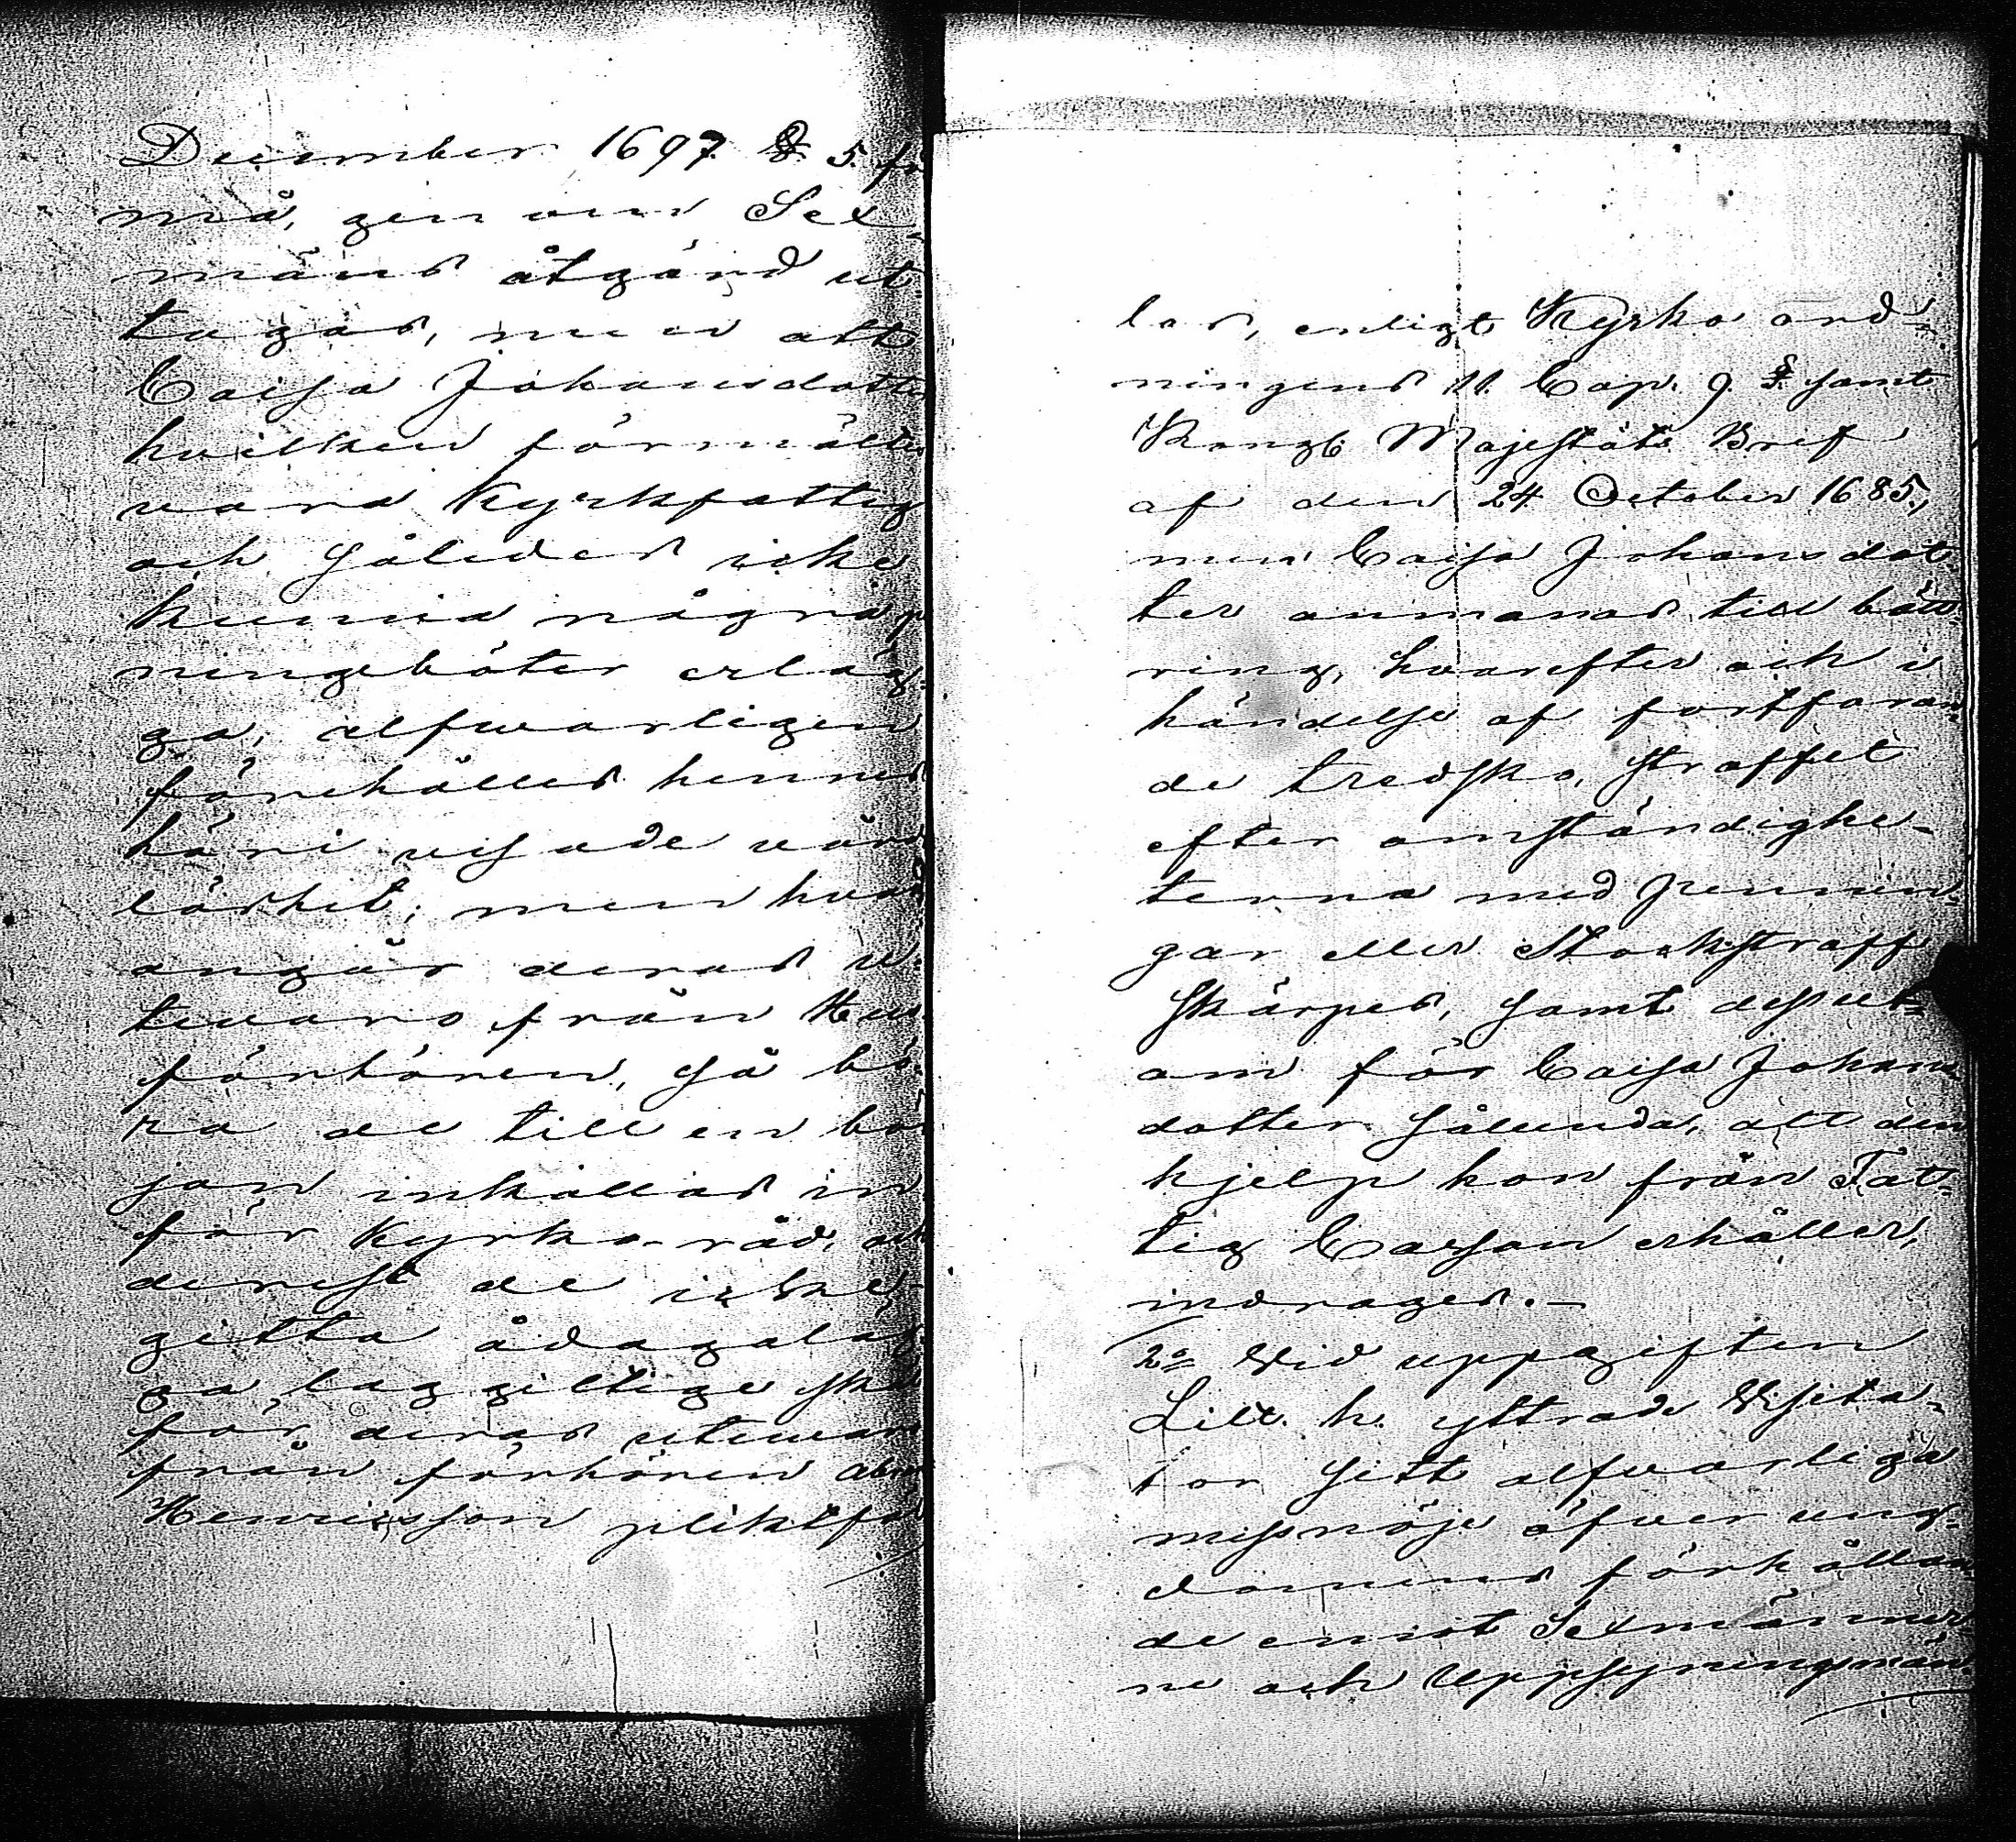 December 1697. §. 5. för
må, genom Sex-
mäns åtgärd ut
tagas, men att
Caisa Johansdotter
hvilken förmäles
vara Kyrkfattig
och således icke
kunna några p
ningeböter erläg-
ga, alfwarligen
förehålles hennes
häri visade vård
löshet; men hvad
angår deras u-
tewaro från Hus
förhören, så bö-
ra de till en bör
jan inkallas in
för Kyrko-råd, och
derest de icke
gitta ådagaläg
ga laggiltige skä
för deras utewaro
från förhören Abra
Henricsson pliktfäl
las, enligt Kyrko ord-
ningens 11. Cap. 9. §. samt
Kongl. Majestäts Bref
af den 24 October 1685.,
men Caisa Johansdot
ter anmanas till bätt
ring, hvarefter och i
händelse af fortfaran-
de tredska, straffet
efter omständighe-
terna med pennin-
gar eller Stockstraff
skärpes, samt dessut-
om för Caisa Johans
dotter sålunda, att den
hjelp hon från Fat-
tig Cassan erhåller,
indrages.-
2o Vid uppgiften
Litt. h. yttrade Visita-
tor sitt alfwarliga
missnöje öfwer ung-
domens förhållan-
de emot Sexmänner
ne och Uppsyningsmän-